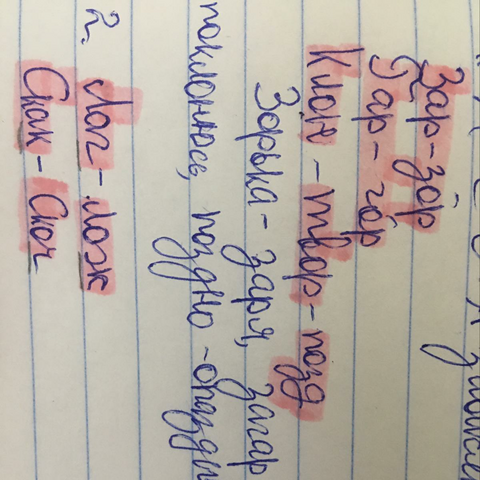 Зар-зор
Гар-гор
Клон-твор-позд
Зорька-заря, загар
поклонюсь, поздно-опозд
2. Лог-лож
Скак-Скоч